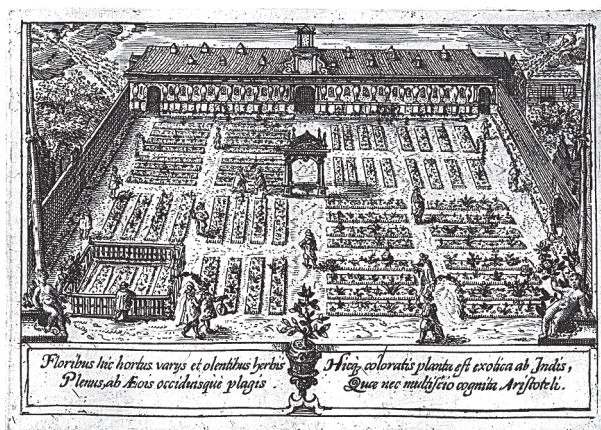 Floribus hic hortus varys et olentibus herbis
Plenus, ab Æois occiduisque plagis.
Hicq, coloratis planta est exotica ab Indis,
Quæ nec multiscio cognita Aristoteli.